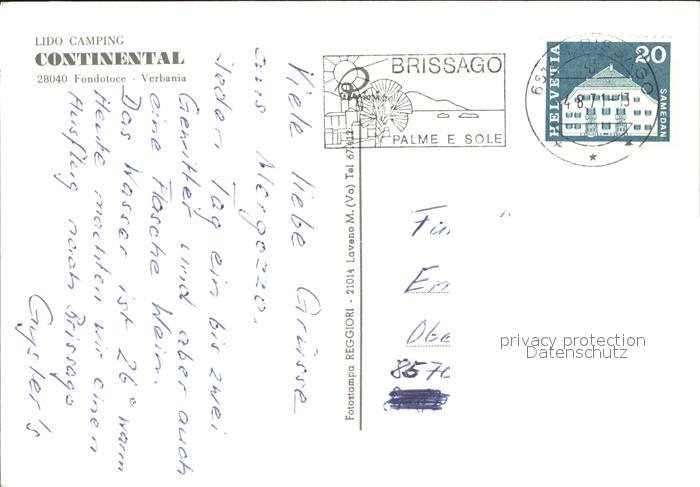 LIDO CAMPING
CONTINENTAL
28040 Fondotoce - Verbania
Viele liebe Grüsse
aus Mergozzo.
Jeden Tag ein bis zwei
Gewitter und aber auch
eine Flasche Wein.
Das Wasser ist 26° warm
Heute machten wir einen
Ausflug nach Brissago
Gysler's
Fotostampa REGGIORI - 21014 Laveno M. (Va) Tel.
BRISSAGO
PALME E SOLE
BRISSAGO
4.8.71-13
HELVETIA
20
SAMEDAN
Obe
8570
privacy protection
Datenschutz